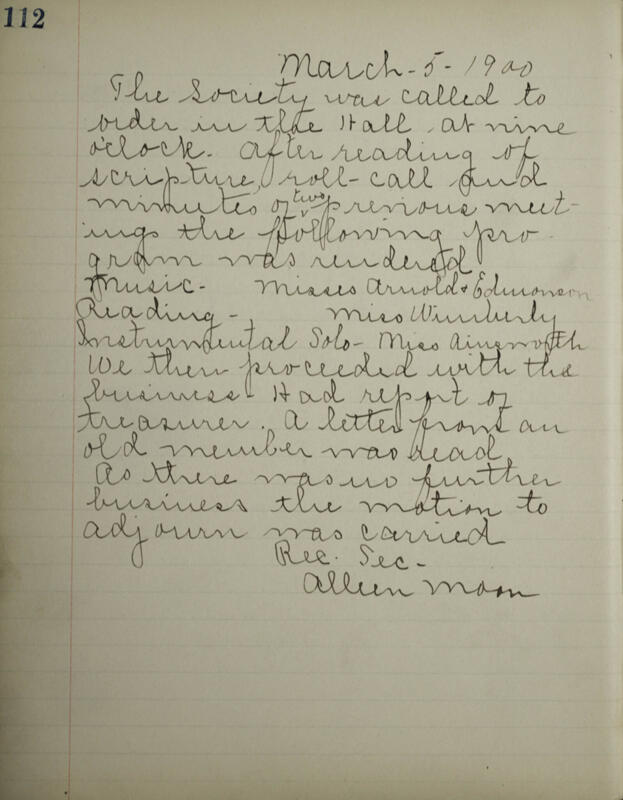 112
March-5-1900
The Society was called to
order in the Hall at nine
o'clock. After reading of
scripture, roll-call and
minutes of two previous meet-
ings the following pro
gram was rendered
Music- Misses Arnold & Edmonson
Reading- Miss Wimberly
Instrumental Solo- Miss Ainsworth
We then proceeded with the
business- Had report of
treasurer. A letter from an
old member was read
As there was no further
business the motion to
adjourn was carried
Rec. Sec-
Alleen Moon